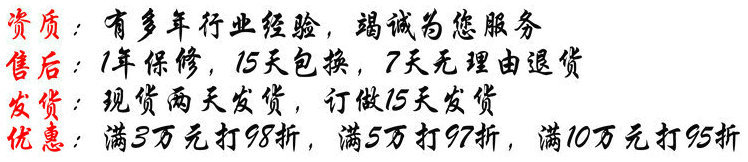 资质：有多年行业经验，竭诚为您服务
售后：1年保修，15天包换，7天无理由退货
发货：现货两天发货，订做15天发货
优惠：满3万元打98折，满5万打97折，满10万元打95折